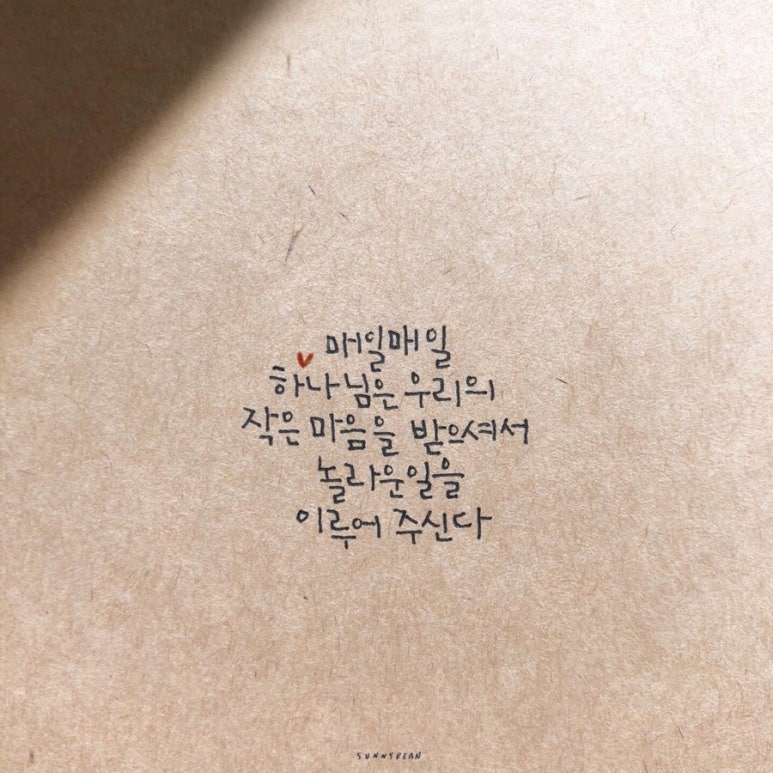 매일매일
하나님은 우리의
작은 마음을 받으셔서
놀라운일을
이루어 주신다
SUNNYBEAN